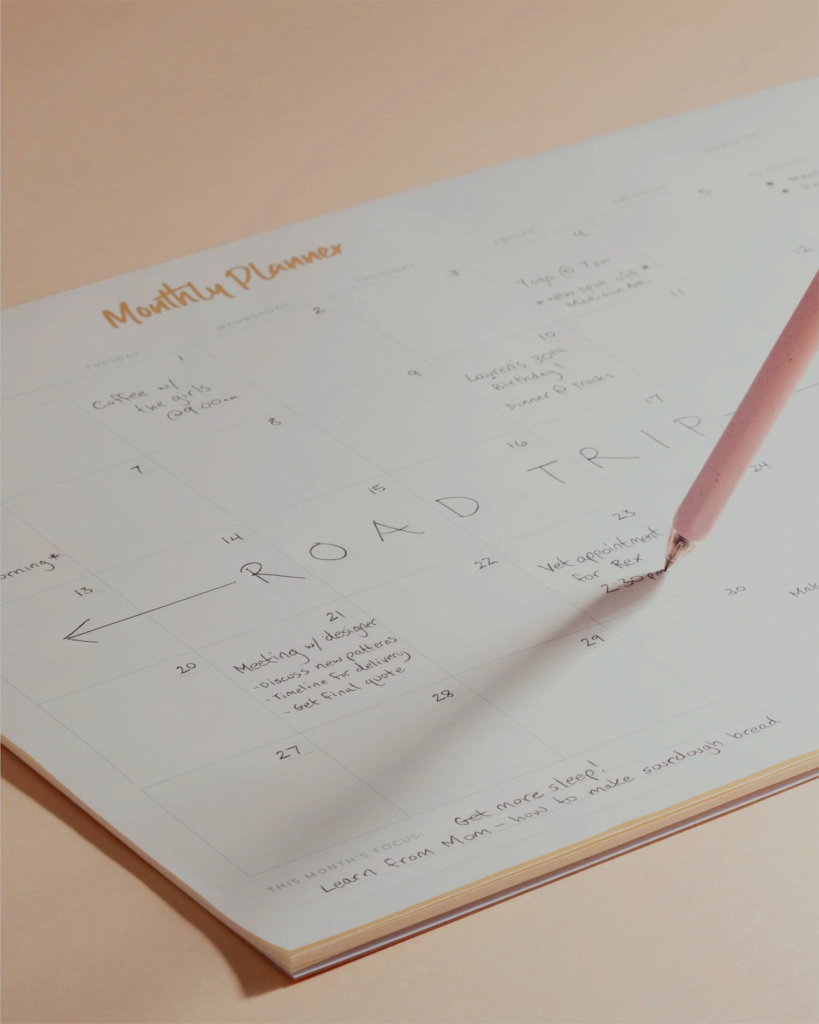 Monthly Planner
TUESDAY
WEDNESDAY
THURSDAY
FRIDAY
SATURDAY
1
Coffee w/
the girls
@9:00am
2
3
4
Yoga @ 7pm
*New spot off*
Madison Ave
5
7
8
9
10
Lauren's 30th
Birthday!
Dinner @ Tracks
11
12
orning*
13
14
15
16
17
ROAD TRIP
20
21
Meeting w/ designer
-Discuss new patterns
-Timeline for delivery
-Get final quote
22
23
Vet appointment
for Rex
2:30pm
24
27
28
29
30
Mak
THIS MONTH'S FOCUS:
Get more sleep!
Learn from Mom - how to make sourdough bread